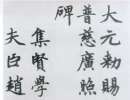 大元勅賜
普慈廣照
碑
集賢學
夫臣趙